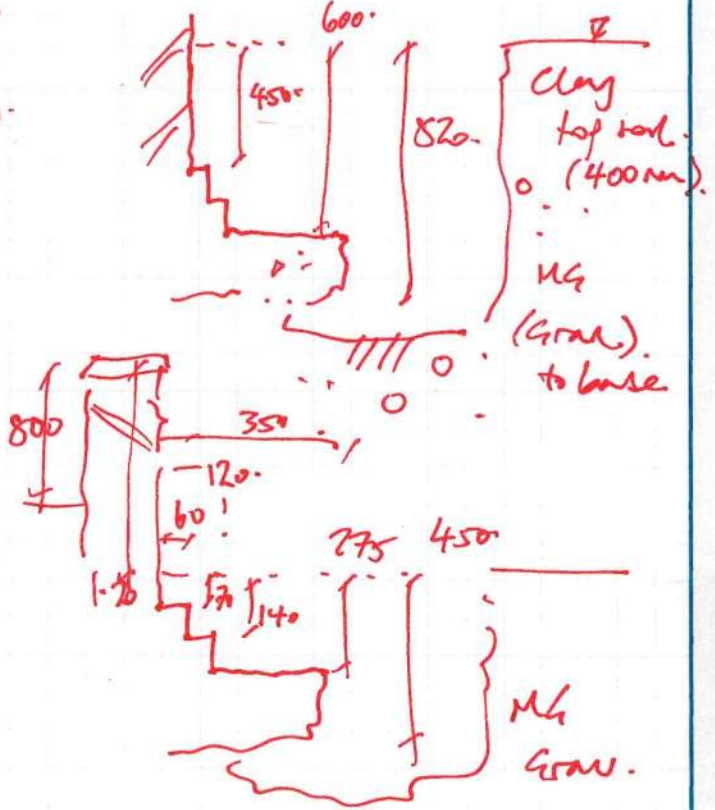 600.
450.
820.
Clay
top soil.
(400mm).
MG
(Gran).
to base
800
350.
120.
60
275 450.
140
MG
Gran.